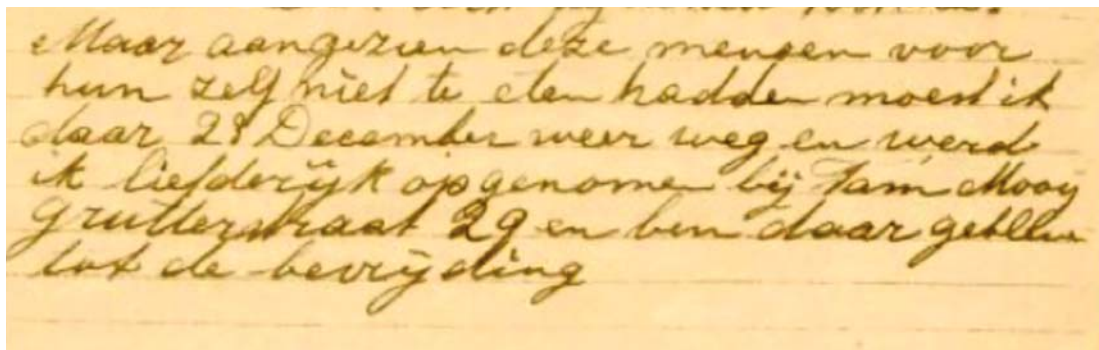 Maar aangezien deze mensen voor
hun zelf niet te eten hadden moest ik
daar 28 December weer weg en werd
ik liefderijk opgenomen bij Fam Mooy
Grutterstraat 29 en ben daar gebleven
tot de bevrijding